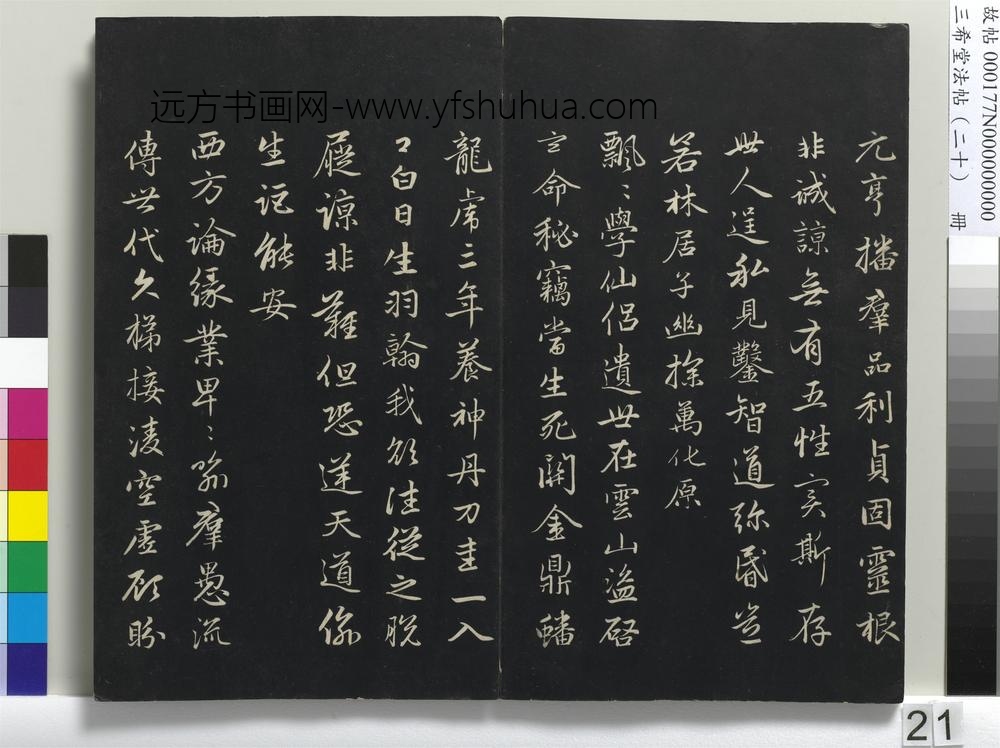 元亨播羣品利貞固靈根
非誠諒無有五性实斯存
世人逞私見鑿智道弥昏豈
若林居子幽探萬化原
飄〻學仙侣遺世在雲山盜啓
玄命秘竊當生死關金鼎蟠
龍虎三年養神丹刀圭一入
口白日生羽翰我欲往從之脱
屣諒非難但恐逆天道偷
生詎能安
西方論緣業卑〻喻羣愚流
傳世代久梯接凌空虚顧盼
远方书画网-www.yfshuhua.com
故帖 000177N000000000
三希堂法帖（二十） 冊
21